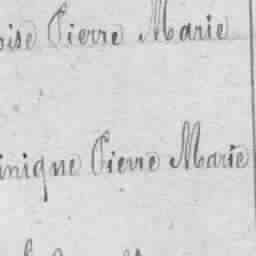 oise Pierre Marie
inique Pierre Marie